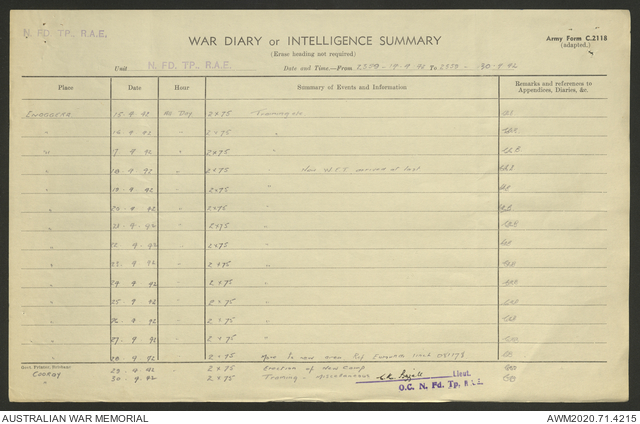 N. FD. TP. R.A.E.
WAR DIARY or INTELLIGENCE SUMMARY
Army Form C.2118
(adapted.)
(Erase heading not required)
Unit N. FD. TP. R.A.E. Date and Time.—From 2359 - 19-9-42 To 2359 - 30-9-42
Place Date Hour Summary of Events and Information Remarks and references to Appendices, Diaries, &c.
Enoggera 15 9 42 All Day 2 x 75 Training etc
" 16 9 42 " 2 x 75 "
" 17 9 42 " 2 x 75 "
" 18 9 42 " 2 x 75 " New at last
" 19 9 42 " 2 x 75 "
" 20 9 42 " 2 x 75 "
" 21 9 42 " 2 x 75 "
" 22 9 42 " 2 x 75 "
" 23 9 42 " 2 x 75 "
" 24 9 42 " 2 x 75 "
" 25 9 42 " 2 x 75 "
" 26 9 42 " 2 x 75 "
" 27 9 42 " 2 x 75 "
" 28 9 42 " 2 x 75 Move to new area Ref
Govt. Printer,
Cooroy 29 9 42 " 2 x 75 Erection of New Camp
" 30 9 42 " 2 x 75 Training - Miscellaneous Lieut.
O.C. N. Fd. Tp. R.A.E.
AUSTRALIAN WAR MEMORIAL AWM2020.71.4215